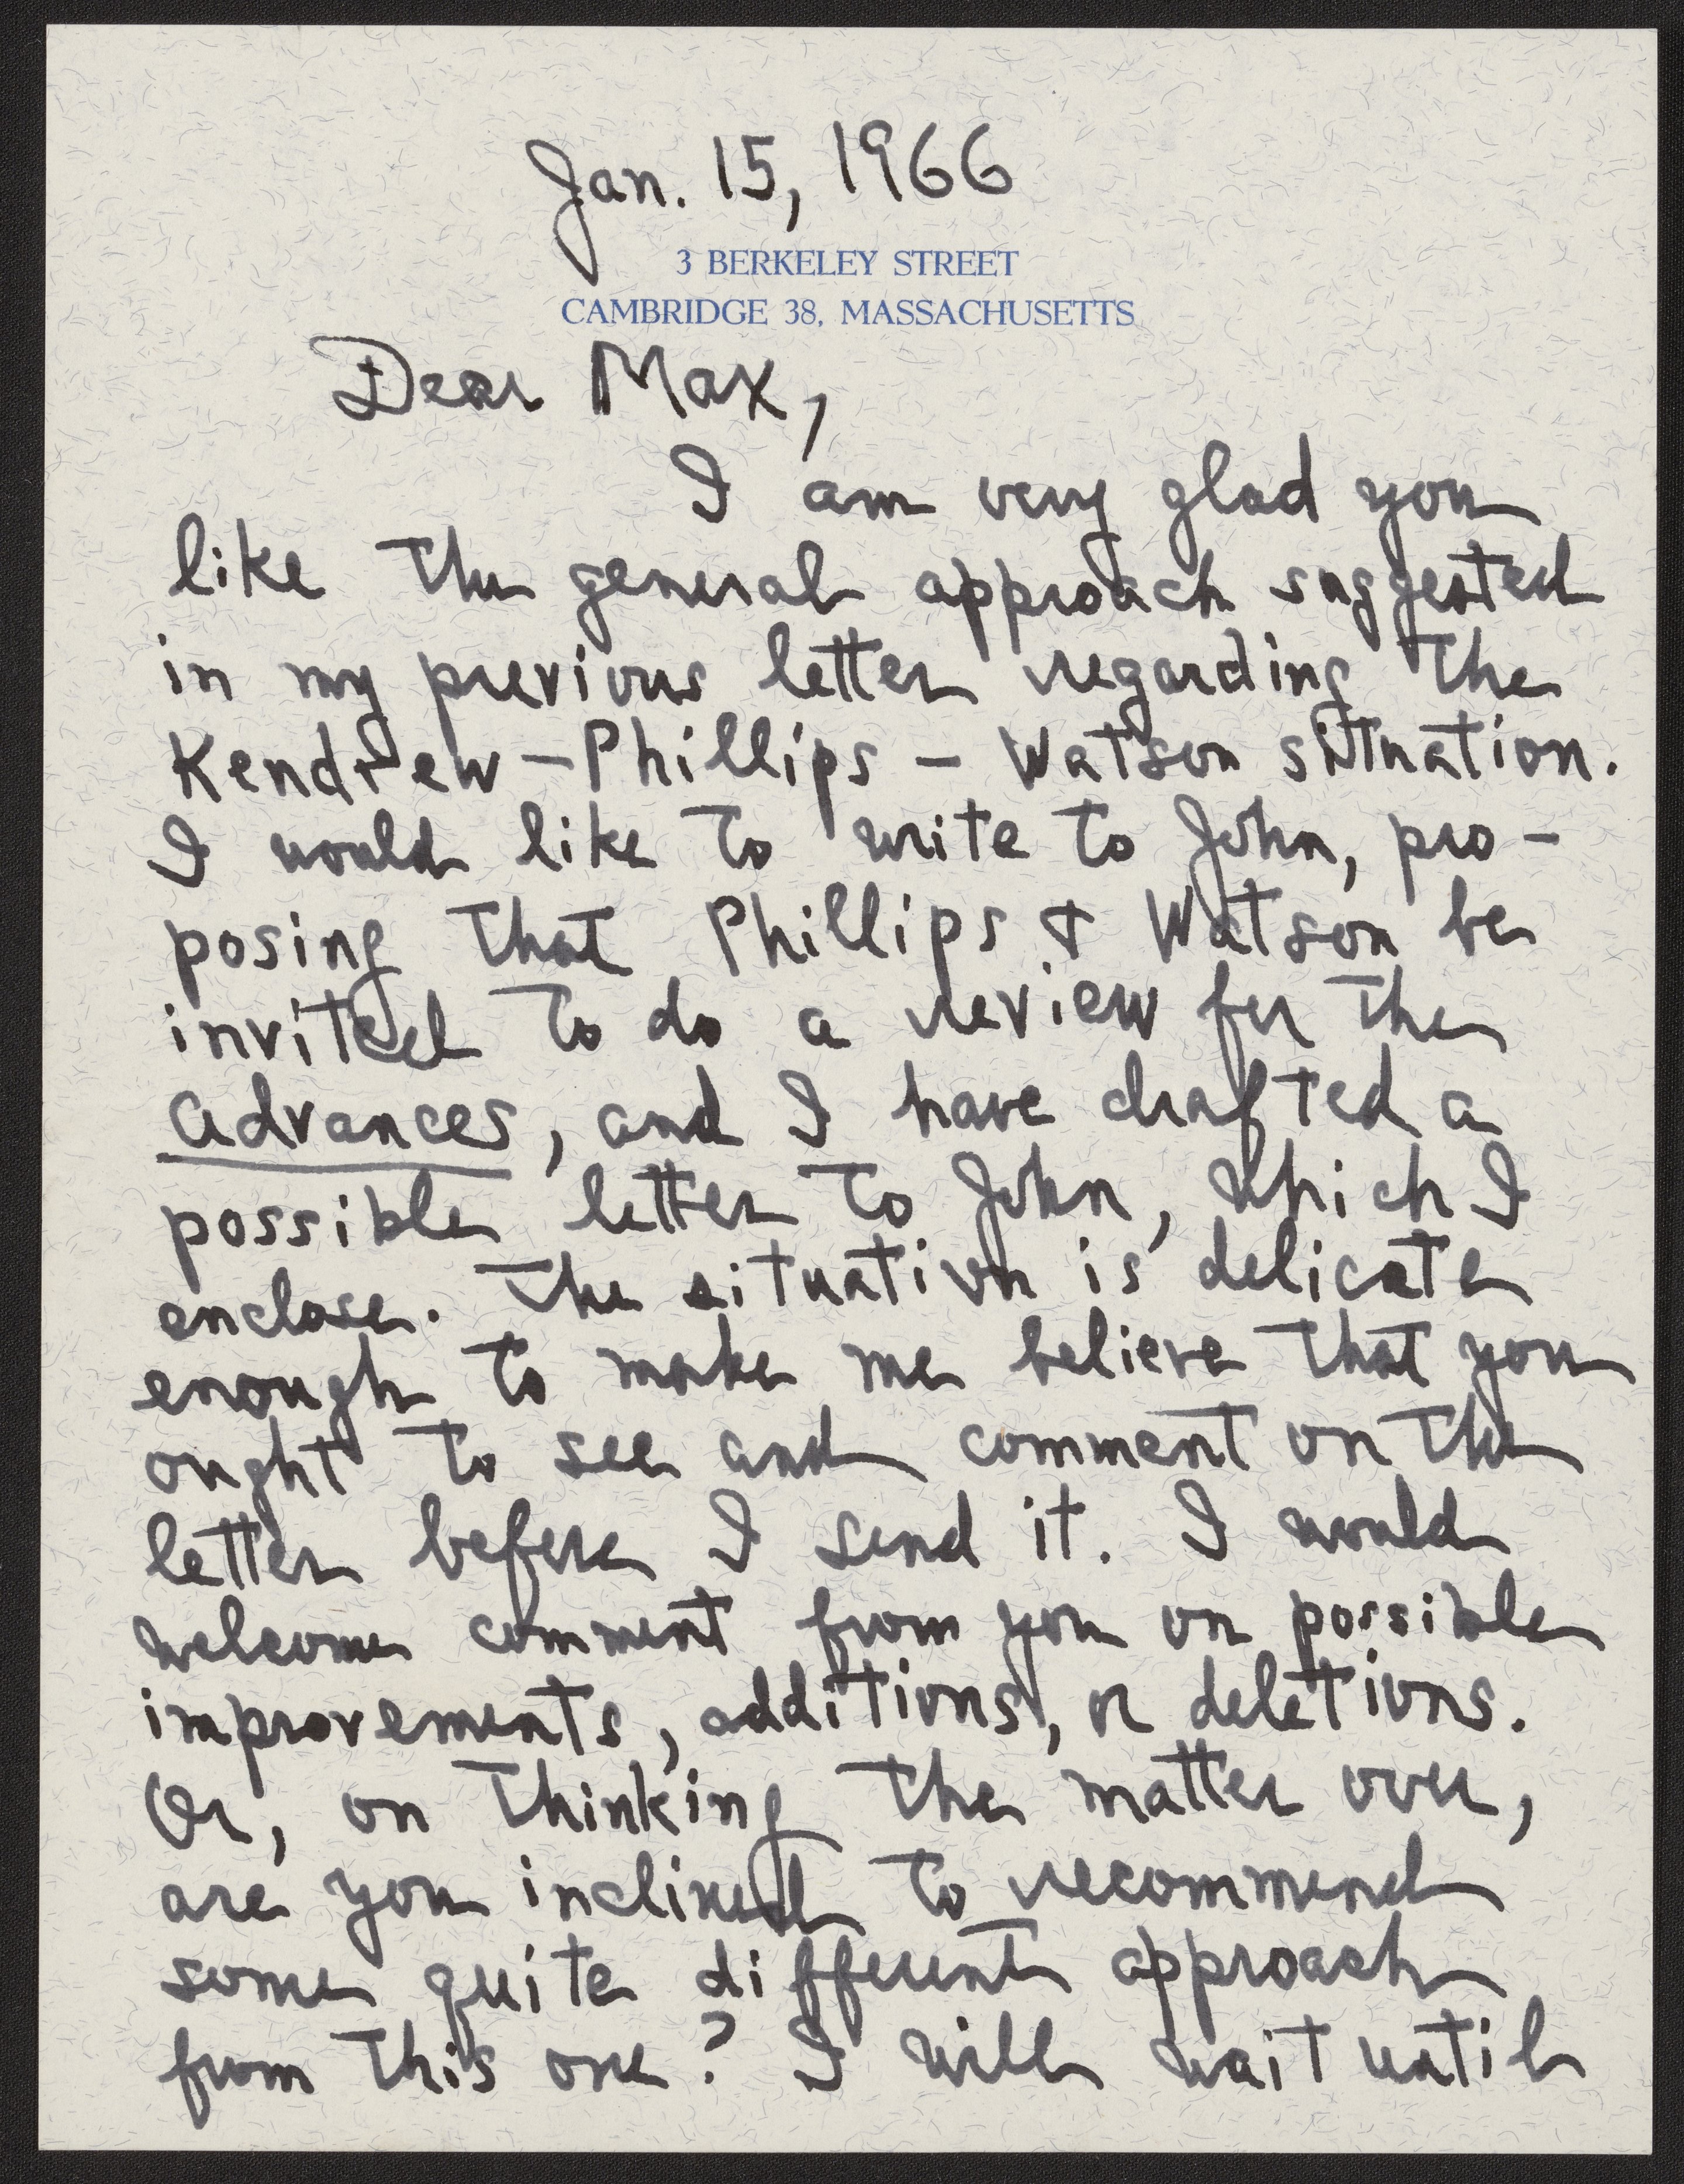 Jan. 15, 1966
3 BERKELEY STREET
CAMBRIDGE 38, MASSACHUSETTS
Dear Max,
I am very glad you
like the general approach suggested
in my previous letter regarding the
Kendrew-Phillips - Watson situation.
I would like to write to John, pro-
posing that Phillips & Watson be
invited to do a review for the
Advances, and I have drafted a
possible letter to John, which I
enclose. The situation is delicate
enough to make me believe that you
ought to see and comment on the
letter before I send it. I would
welcome comment from you on possible
improvements, additions, or deletions.
Or, on thinking the matter over,
are you inclined to recommend
some quite different approach
from this one? I will wait until